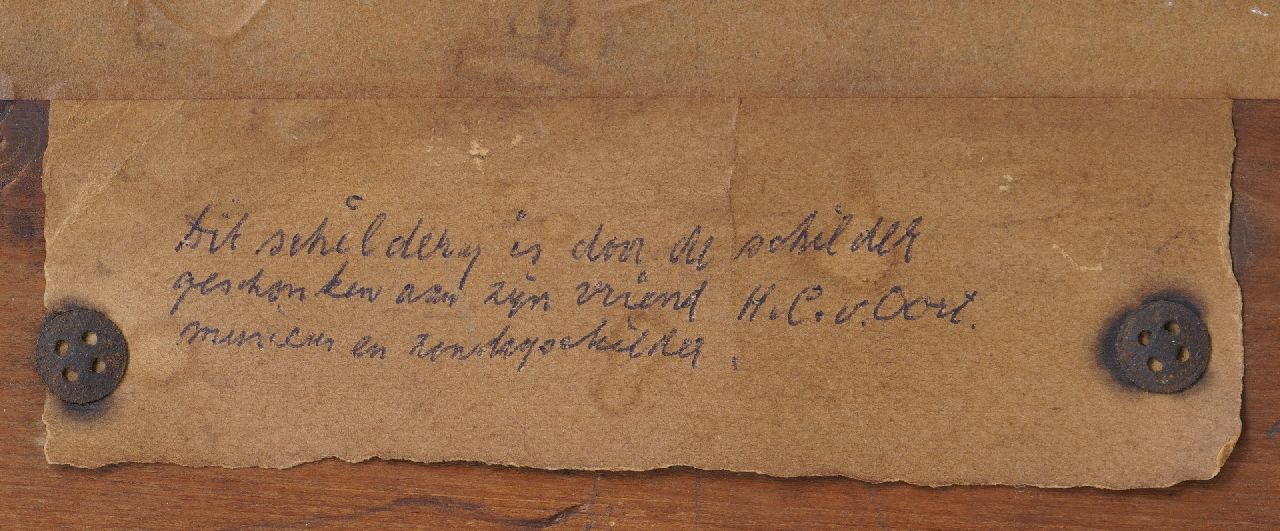 Dit schildery is door de schilder
geschonken aan zijn vriend H.C.v.Oort.
musicus en zondagschilder.